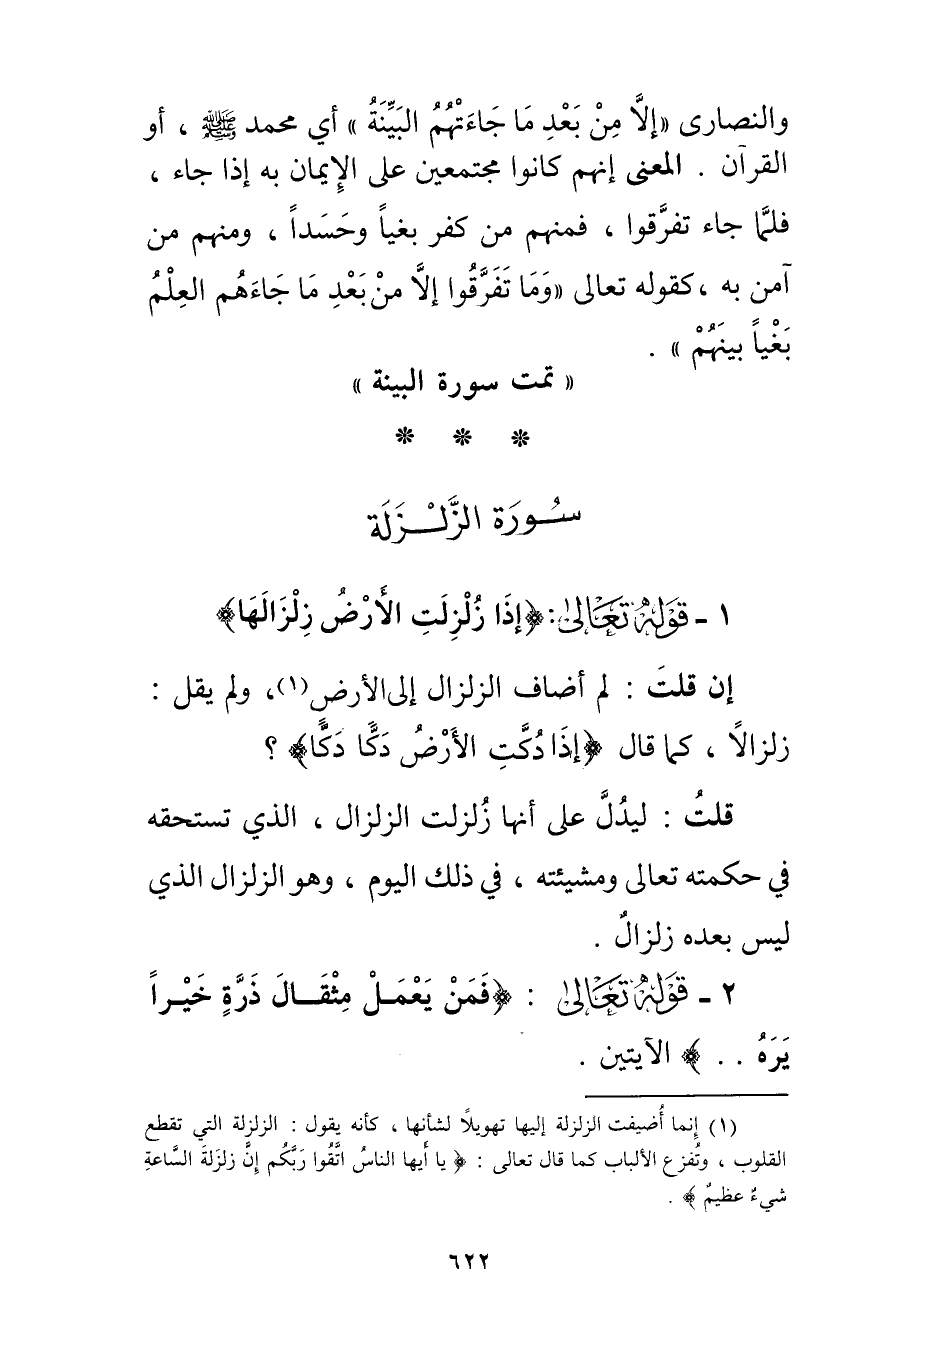 والنصارى «إلَّا مِنْ بَعْدِ مَا جَاءَتْهُمُ البَيِّنَةُ» أي محمد ﷺ ، أو
القرآن . المعنى إنهم كانوا مجتمعين على الإِيمان به إذا جاء ،
فلمَّا جاء تفرَّقوا ، فمنهم من كفر بغياً وحَسَداً ، ومنهم من
آمن به ،كقوله تعالى «وَمَا تَفَرَّقُوا إلَّا منْ بَعْدِ مَا جَاءَهُم العِلْمُ
بَغْياً بينَهُمْ» .
« تمت سورة البينة »
* * *
سُورَة الزَّلْزَلَة
١ - قَوْلُهُ تَعَالَىٰ: ﴿إِذَا زُلْزِلَتِ الأَرْضُ زِلْزَالَهَا﴾
إن قلتَ : لم أضاف الزلزال إلى الأرض(١)، ولم يقل :
زلزالاً ، كما قال ﴿إِذَا دُكَّتِ الأَرْضُ دَكًّا دَكًّا﴾ ؟
قلتُ : ليدُلَّ على أنها زُلزلت الزلزال ، الذي تستحقه
في حكمته تعالى ومشيئته ، في ذلك اليوم ، وهو الزلزال الذي
ليس بعده زلزالٌ .
٢ - قَوْلُهُ تَعَالَىٰ : ﴿فَمَنْ يَعْمَلْ مِثْقَالَ ذَرَّةٍ خَيْراً
يَرَهُ . . ﴾ الآيتين .
(١) إنما أُضيفت الزلزلة إليها تهويلاً لشأنها ، كأنه يقول : الزلزلة التي تقطع
القلوب ، وتُفزع الألباب كما قال تعالى : ﴿ يا أيها الناسُ اتَّقُوا رَبَّكُم إنَّ زلزَلةَ السَّاعةِ
شيءٌ عظيمٌ ﴾ .
٦٢٢